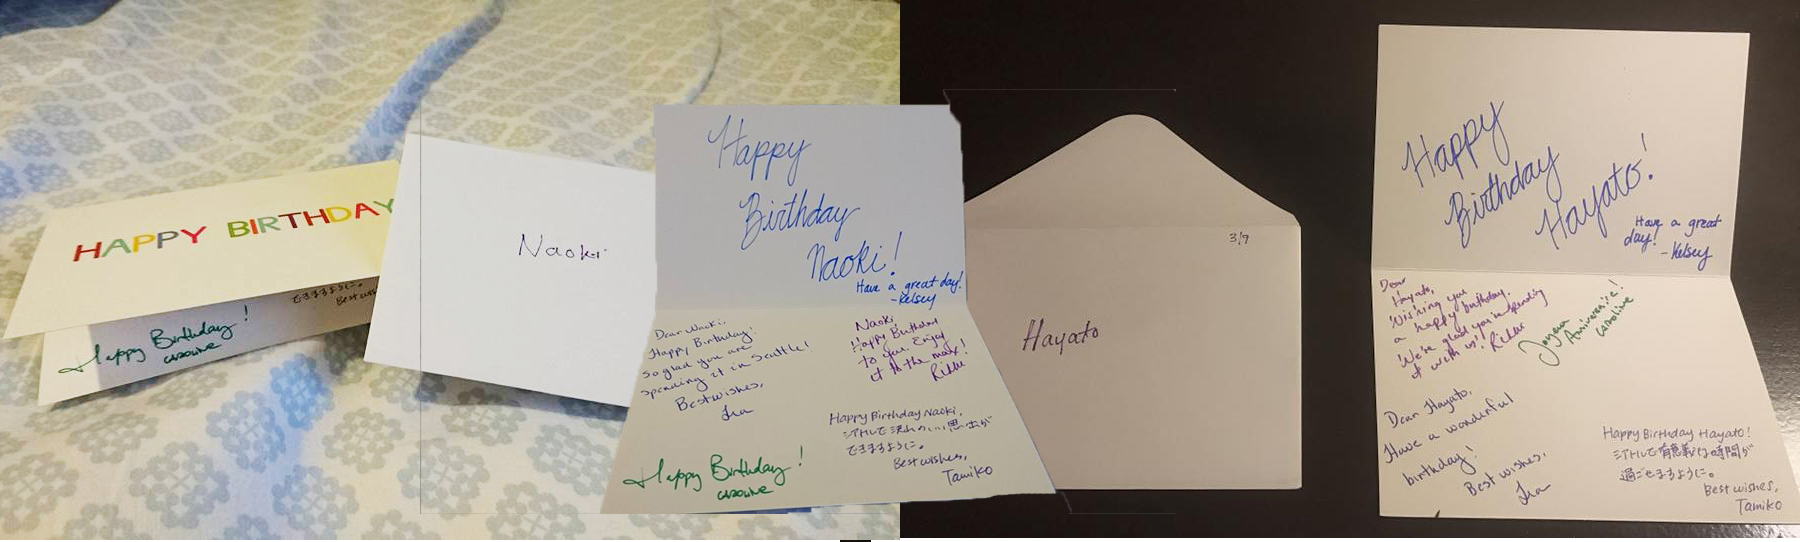 HAPPY BIRTHDAY
できますように。
Best wis
Happy Birthday!
Caroline
Naoki
Happy
Birthday
Naoki!
Have a great day!
-Kelsey
Dear Naoki,
Happy Birthday!
So glad you are
spending it in Seattle!
Best wishes,
Naoki
Happy Birthday
to you. Enjoy
it to the max!
Happy Birthday Naoki,
シアトルで沢山のいい思い出が
できますように。
Best wishes,
Tamiko
Happy Birthday!
Caroline
3/9
Hayato
Happy
Birthday
Hayato!
Have a great
day!
-Kelsey
Dear
Hayato,
Wishing you
a happy birthday.
We're glad you're spending
it with us!
Joyeux
Anniversaire!
Caroline
Dear Hayato,
Have a wonderful
birthday!
Best wishes,
Happy Birthday Hayato!
シアトルで有意義な時間が
過ごせますように。
Best wishes,
Tamiko